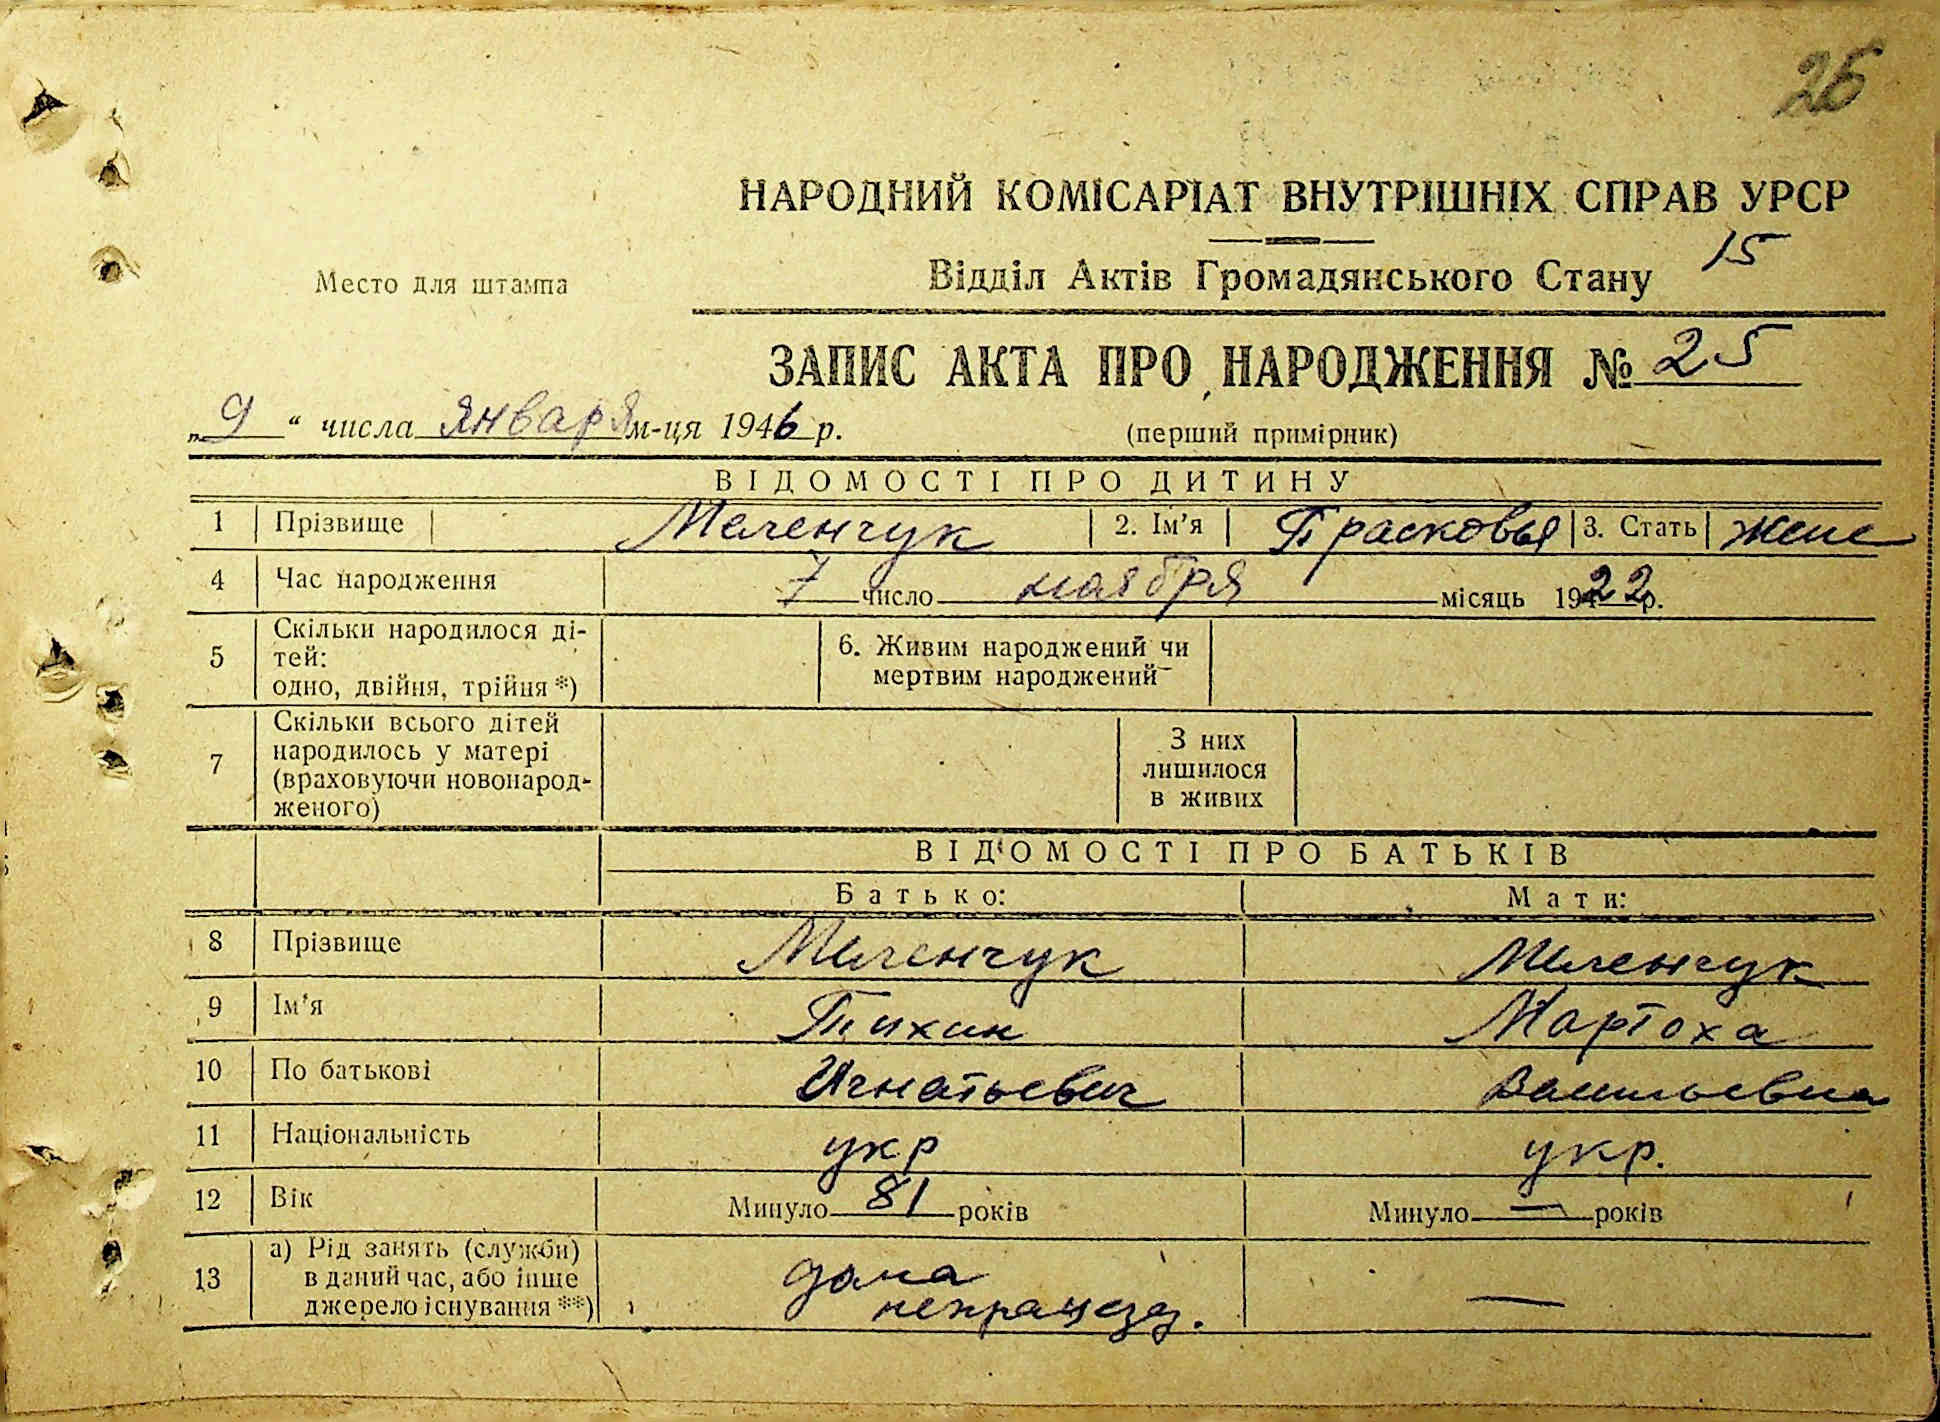 26
НАРОДНИЙ КОМІСАРІАТ ВНУТРІШНІХ СПРАВ УРСР
15
Место для штампа
Відділ Актів Громадянського Стану
ЗАПИС АКТА ПРО НАРОДЖЕННЯ № 25
„9“ числа января м-ця 1946 р.
(перший примірник)
ВІДОМОСТІ ПРО ДИТИНУ
1 Прізвище Меленчук 2. Ім'я Прасковья 3. Стать женс
4 Час народження 7 число ноября місяць 1922 р.
5 Скільки народилося ді-
тей:
одно, двійня, трійня *)
6. Живим народжений чи
мертвим народжений
7 Скільки всього дітей
народилось у матері
(враховуючи новонарод-
женого)
З них
лишилося
в живих
ВІДОМОСТІ ПРО БАТЬКІВ
Батько: Мати:
8 Прізвище Меленчук Меленчук
9 Ім'я Тихин Мартоха
10 По батькові Игнатьевич Васильевна
11 Національність укр укр.
12 Вік Минуло 81 років Минуло — років
13 а) Рід занять (служби)
в даний час, або інше
джерело існування **)
дома
—